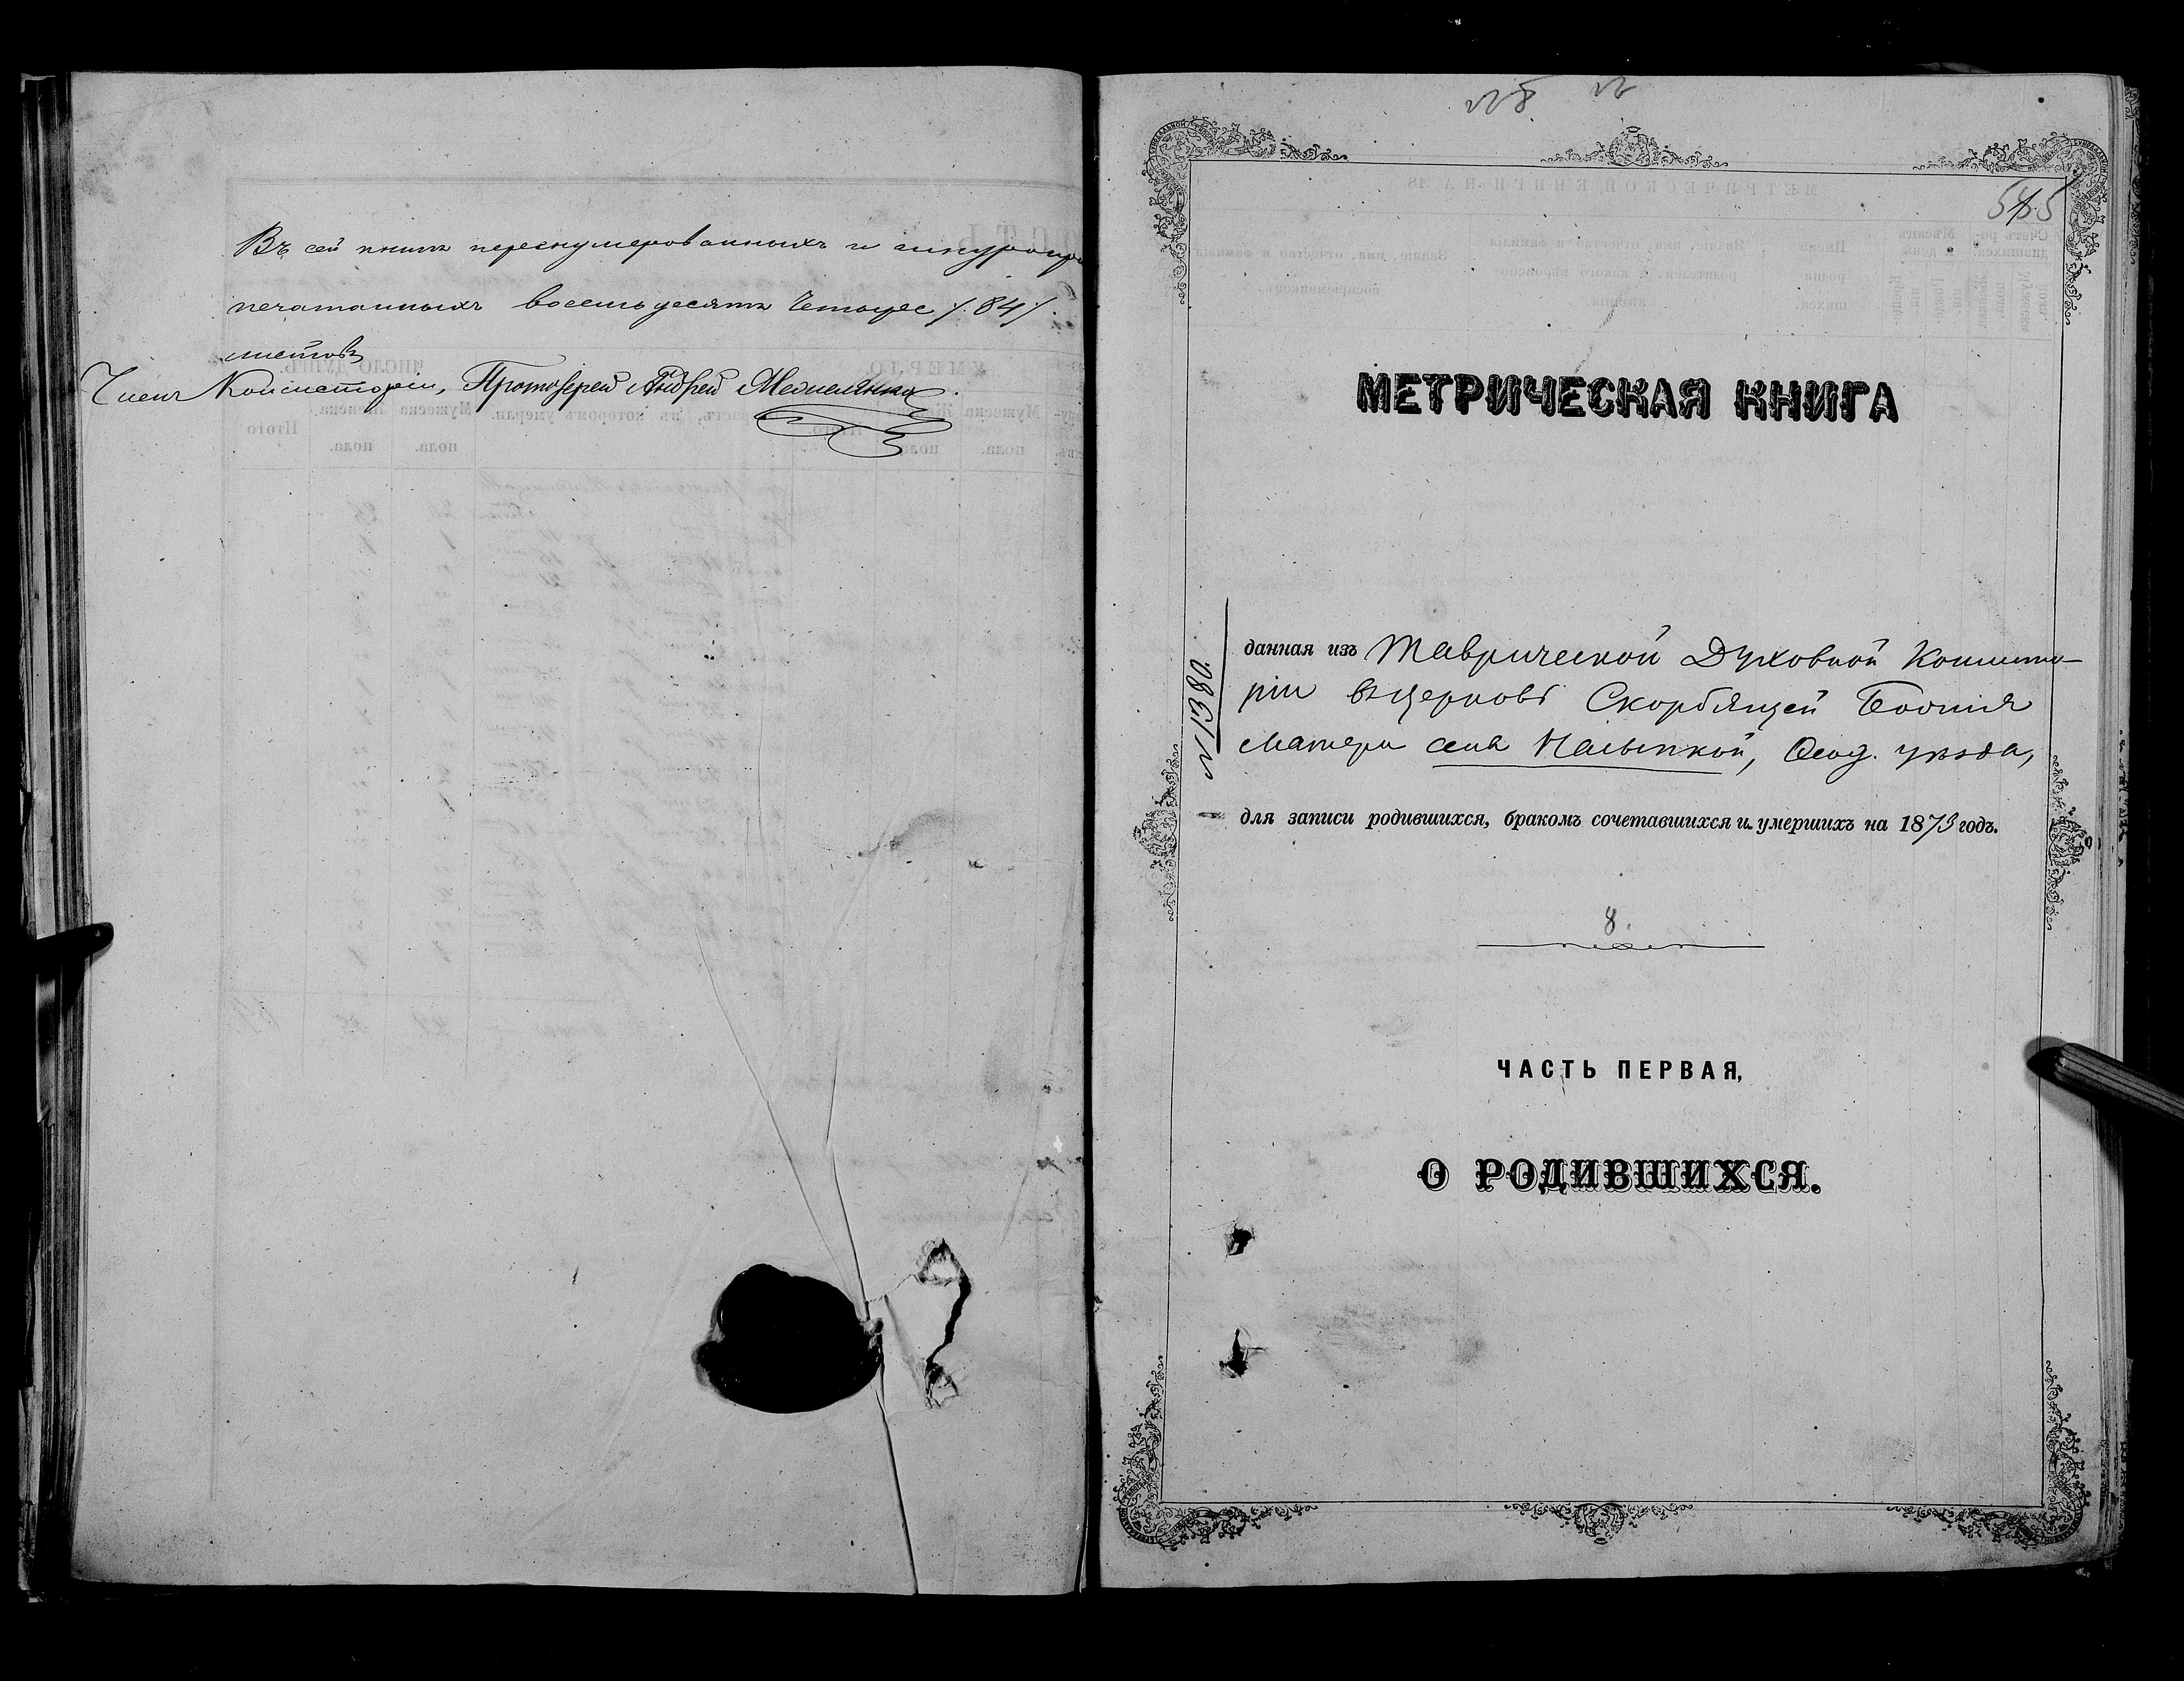 Въ сей книгѣ перенумерованныхъ и шнуропри
печатанныхъ восемьдесятъ четыре /.84/.
листовъ
Членъ Консисторіи, Протоіерей Андрей
№8.
МЕТРИЧЕСКАЯ КНИГА
№1380.
данная изъ Таврической Духовной Консисто-
ріи въ церковь Скорбящей Божія
Матери села Насыпкой, Ѳеод. уѣзда,
для записи родившихся, бракомъ сочетавшихся и умершихъ на 1873 годъ.
8.
ЧАСТЬ ПЕРВАЯ,
О РОДИВШИХСЯ.